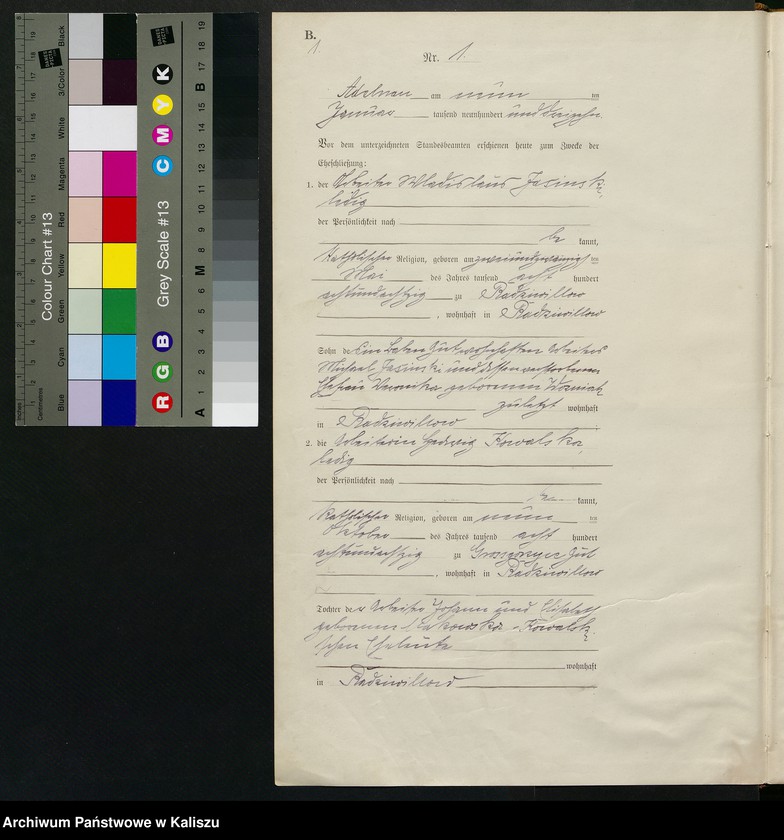 B.
1.
Nr. 1.
Adelnau am neun ten
Januar tausend neunhundert und
Vor dem unterzeichneten Standesbeamten erschienen heute zum Zwecke der
Eheschließung:
1. der Arbeiter Wladislaus Jasinski,
ledig
der Persönlichkeit nach
be kannt,
katholischer Religion, geboren am zweiundzwanzigsten
Mai des Jahres tausend acht hundert
achtundachtzig zu Radziwillow
, wohnhaft in Radziwillow
Sohn des
Michael Jasinski und dessen verstorbenen
Ehefrau Veronika geborenen Wozniak
zuletzt wohnhaft
in Radziwillow
2. die Arbeiterin Hedwig Kowalska,
ledig
der Persönlichkeit nach
be kannt,
katholischer Religion, geboren am neun ten
Oktober des Jahres tausend acht hundert
achtundachtzig zu Gut
, wohnhaft in Radziwillow
Tochter der Arbeiter Johann und Elisabeth
geborenen Kowalski
schen Eheleute
wohnhaft
in Radziwillow
Colour Chart #13
Blue
Cyan
Green
Yellow
Red
Magenta
White
3/Color
Black
Inches
Centimetres
Grey Scale #13
R G B C M Y K
A 1 2 3 4 5 6 M 8 9 10 11 12 13 14 15 B 17 18 19
Archiwum Państwowe w Kaliszu